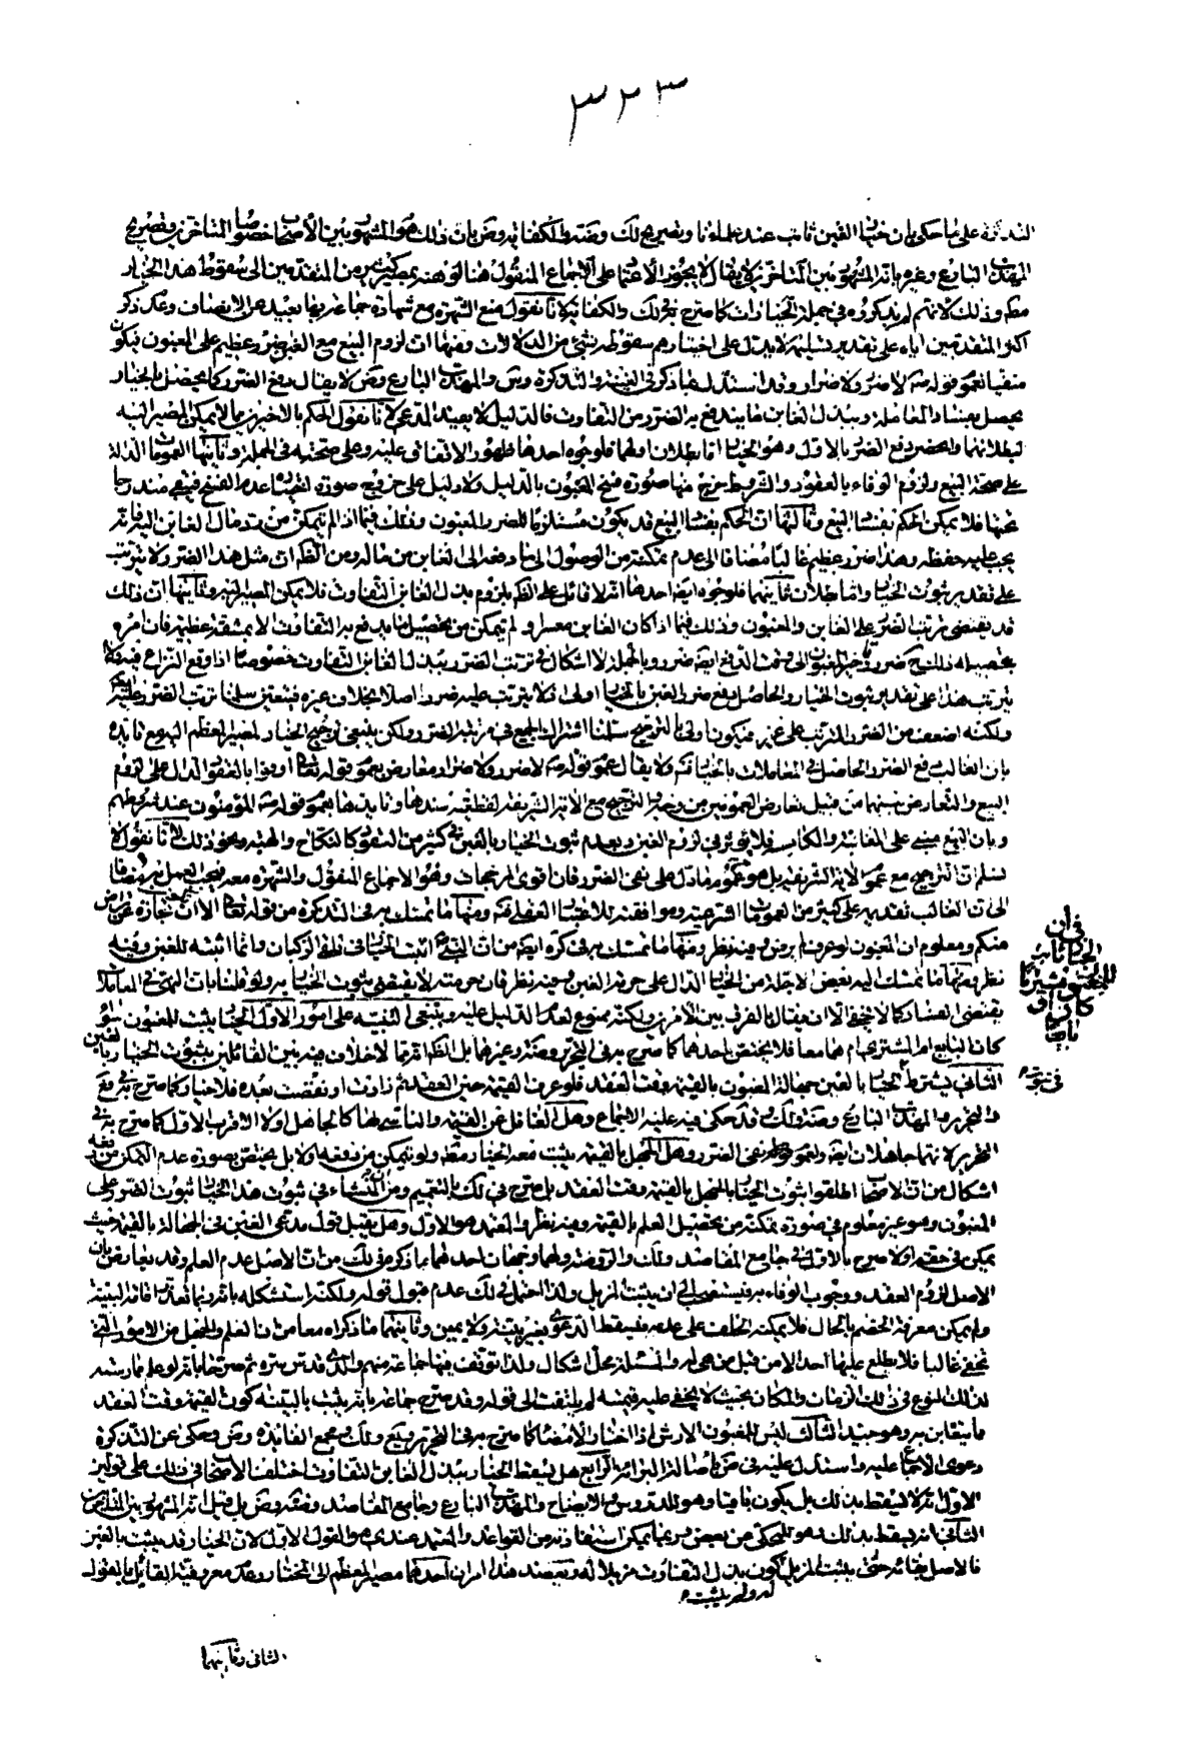 ٣٢٣
التذكرة على ما حكى بان خيار الغبن ثابت عند علمائنا وبتصريح لك وضه والكفاية وض بان ذلك هو المشهور بين الأصحاب خصوصا المتاخرين وتصريح
المهذب البارع وغيره بانه المشهور بين المتاخرين لا يقال لا يجوز الاعتماد على الاجماع المنقول هنا لوهنه بمصير كثير من المتقدمين الى سقوط هذا الخيار
مطلقا وذلك لانهم لم يذكروه في جملة الخيارات كما صرح به في لك والكفاية لانا نقول منع الشهرة مع شهادة جماعة بها بعيد عن الانصاف وعدم ذكر
اكثر المتقدمين اياه على تقدير تسليمه لا يدل على اختيارهم سقوطه بشئ من الدلالات ومنها ان لزوم البيع مع الغبن ضرر عظيم على المغبون فيكون
منفيا لعموم قوله ص لا ضرر ولا ضرار وقد استدل بما ذكر في الغنية والتذكرة وس والمهذب البارع وض لا يقال دفع الضرر كما يحصل بالخيار
يحصل بفساد المعاملة وببذل الغابن ما يندفع به الضرر من التفاوت فالدليل لا يعيد المدعى لانا نقول الحكم بالاخيرين مما لا يمكن المصير اليه
لبطلانهما وانحصر دفع الضرر بالاول وهو الخيار اما بطلان اولهما فلوجوه احدها ظهور الاتفاق عليه وعلى صحته في الجملة وثانيها العمومات الدالة
على صحة البيع ولزوم الوفاء بالعقود والشروط خرج منها صورة فسخ المغبون بالدليل ولا دليل على خروج صورة اختياره عدم الفسخ فيبقى مندرجا
تحتها فلا يمكن الحكم بفساد البيع وثالثها ان الحكم بفساد البيع قد يكون مستلزما للضرر المغبون وذلك فيما اذا لم يتمكن من رد مال الغابن اليه فانه
يجب عليه حفظه وهذا ضرر عظيم غالبا مضافا الى عدم تمكنه من الوصول الى ما دفعه الى الغابن من ماله ومن الظ ان مثل هذا الضرر لا يترتب
على تقدير ثبوت الخيار واما بطلان ثانيهما فلوجوه ايضا احدها انه لا قائل على الظ بلزوم بذل الغابن التفاوت فلا يمكن المصير اليه وثانيها ان ذلك
قد يقتضي ترتب الضرر على الغابن والمغبون وذلك فيما اذا كان الغابن معسرا ولم يتمكن من تحصيل ما يدفع به التفاوت الا بمشقة عظيمة فان امره
بتحصيله ذلك ضرر وتاخير المغبون الى وقت الدفع ايضا ضرر وبالجملة لا اشكال في ترتب الضرر ببذل الغابن التفاوت خصوصا اذا وقع النزاع فيه ولا
يترتب هذا على تقدير ثبوت الخيار والحاصل دفع ضرر الغبن بالخيار اولى اذ لا يترتب عليه ضرر اصلا بخلاف غيره فتعين سلمنا ترتب الضرر عليه
ولكنه اضعف من الضرر المترتب على غيره فيكون اولى بالترجيح سلمنا اشتراك الجميع في مرتبة الضرر ولكن ينبغي ترجيح الخيار لمصير المعظم اليه مع تايده
بان الغالب دفع الضرر الحاصل في المعاملات بالخيار فتم ولا يقال عموم قوله ص لا ضرر ولا ضرار معارض بعموم قوله تعالى اوفوا بالعقود الدال على لزوم
البيع والتعارض بينهما من قبيل تعارض العمومين من وجه والترجيح مع الاية الشريفة لقطعية سندها وتايدها بعموم قوله ص المؤمنون عند شروطهم
وبان البيع مبني على المغابنة والمكاسبة فلا يؤثر في لزومه الغبن وبعدم ثبوت الخيار بالغبن في كثير من العقود كالنكاح والهبة ونحو ذلك لانا نقول لا
نسلم ان الترجيح مع عموم الاية الشريفة بل هو مع عموم ما دل على نفي الضرر فان اقوى المرجحات وهو الاجماع المنقول والشهرة معه فيجب العمل به مضافا
الى ان الغالب تقديمه على كثير من العمومات الشرعية وموافقته للاعتبار العقلي فتم ومنها ما تمسك به في التذكرة من قوله تعالى الا ان تكون تجارة عن تراض
منكم ومعلوم ان المغبون لو عرف لم يرض وفيه نظر ومنها ما تمسك به في كرة ايضا من ان النبي ص اثبت الخيار في تلقي الركبان وانما اثبته للغبن وفيه
نظر ومنها ما تمسك اليه بعض الاجلة من الاخبار الدال على حرمة الغبن وفيه نظر فان حرمته لا يقتضي ثبوت الخيار به ولو قلنا بان النهي في المعاملات
يقتضي الفساد كما لا يخفى الا ان يقال بالفرق بين الأمرين ولكنه ممنوع لعدم الدليل عليه وينبغي التنبيه على امور الاول الخيار يثبت للمغبون سواء
كان البايع او المشتري او هما معا فلا يختص باحدهما كما صرح به في التحرير وضة وغيرهما بل الظ انه مما لا خلاف فيه بين القائلين بثبوت الخيار بالغبن
الثاني يشترط في الخيار بالغبن جهالة المغبون بالقيمة وقت العقد فلو عرف القيمة حين العقد ثم زادت او نقصت بعده فلا خيار كما صرح به في فع
والتحرير والمهذب البارع وضة ولك وقد حكى فيه عليه الاجماع وهل الغافل عن القيمة والناسي لها كالجاهل او لا الاقرب الاول كما صرح به في
التحرير لانهما جاهلان ايضا ولعموم نفي الضرر وهل الجهل بالقيمة يثبت معه الخيار مطلقا ولو تمكن من دفعه او لا بل يختص بصورة عدم التمكن من دفعه
اشكال من ان الاصحاب اطلقوا ثبوت الخيار بالجهل بالقيمة وقت العقد بل صرح في لك بالتعميم ومن ان المنشاء في ثبوت هذا الخيار ثبوت الضرر على
المغبون وهو غير معلوم في صورة تمكنه من تحصيل العلم بالقيمة وفيه نظر والمعتمد هو الاول وهل يقبل قول مدعي الغبن في الجهالة بالقيمة حيث
يمكن في حقه او لا صرح بالاول في جامع المقاصد ولك والروضة ولهم وجهان احدهما ما ذكره في لك من ان الاصل عدم العلم وقد يعارض بان
الاصل لزوم العقد ووجوب الوفاء به فيستصحب الى ان يثبت المزيل ولذا احتمل في لك عدم قبول قوله ولكنه استشكله بانه ربما تعذر اقامة البينة
ولم يمكن معرفة الخصم بالحال فلا يمكنه الحلف على عدمه فيسقط الدعوى بغير بينة ولا يمين وثانيهما ما ذكراه معا من ان العلم والجهل من الامور التي
تخفى غالبا فلا يطلع عليها احد الا من قبل من هي له والمسئلة محل اشكال ولذا توقف فيها جماعة منهم والدي قدس سره ثم صرحا بانه لو علم ممارسته
لذلك النوع في ذلك الزمان والمكان بحيث لا يخفى عليه قيمته لم يلتفت الى قوله وقد صرح جماعة بانه يثبت بالبينة كون القيمة وقت العقد
ما يتغابن به وهو جيد الثالث ليس للمغبون الارش اذا اختار الامضاء كما صرح به في التحرير ويع ولك ومجمع الفائدة وض وحكى عن التذكرة
دعوى الاجماع عليه واستدل عليه في ض باصالة البرائة الرابع هل يسقط الخيار ببذل الغابن التفاوت اختلف الاصحاب في ذلك على قولين
الاول انه لا يسقط بذلك بل يكون باقيا وهو للدروس والايضاح والمهذب البارع وجامع المقاصد وضة وض بل قيل انه المشهور بين المتاخرين
الثاني انه يسقط بذلك وهو المحكي عن بعض وربما يمكن استفادته من القواعد والمعتمد عندي هو القول الاول لان الخيار قد يثبت بالغبن
فالاصل بقائه حتى يثبت المزيل لكون بذل التفاوت مزيلا له ولم يثبت ويعضد هذا امران احدهما مصير المعظم الى المختار وعدم معروفية القائل بالقول
الثاني وثانيهما
في ان
الخيار ثابت
للمغبون مشتريا
كان او
بايعا